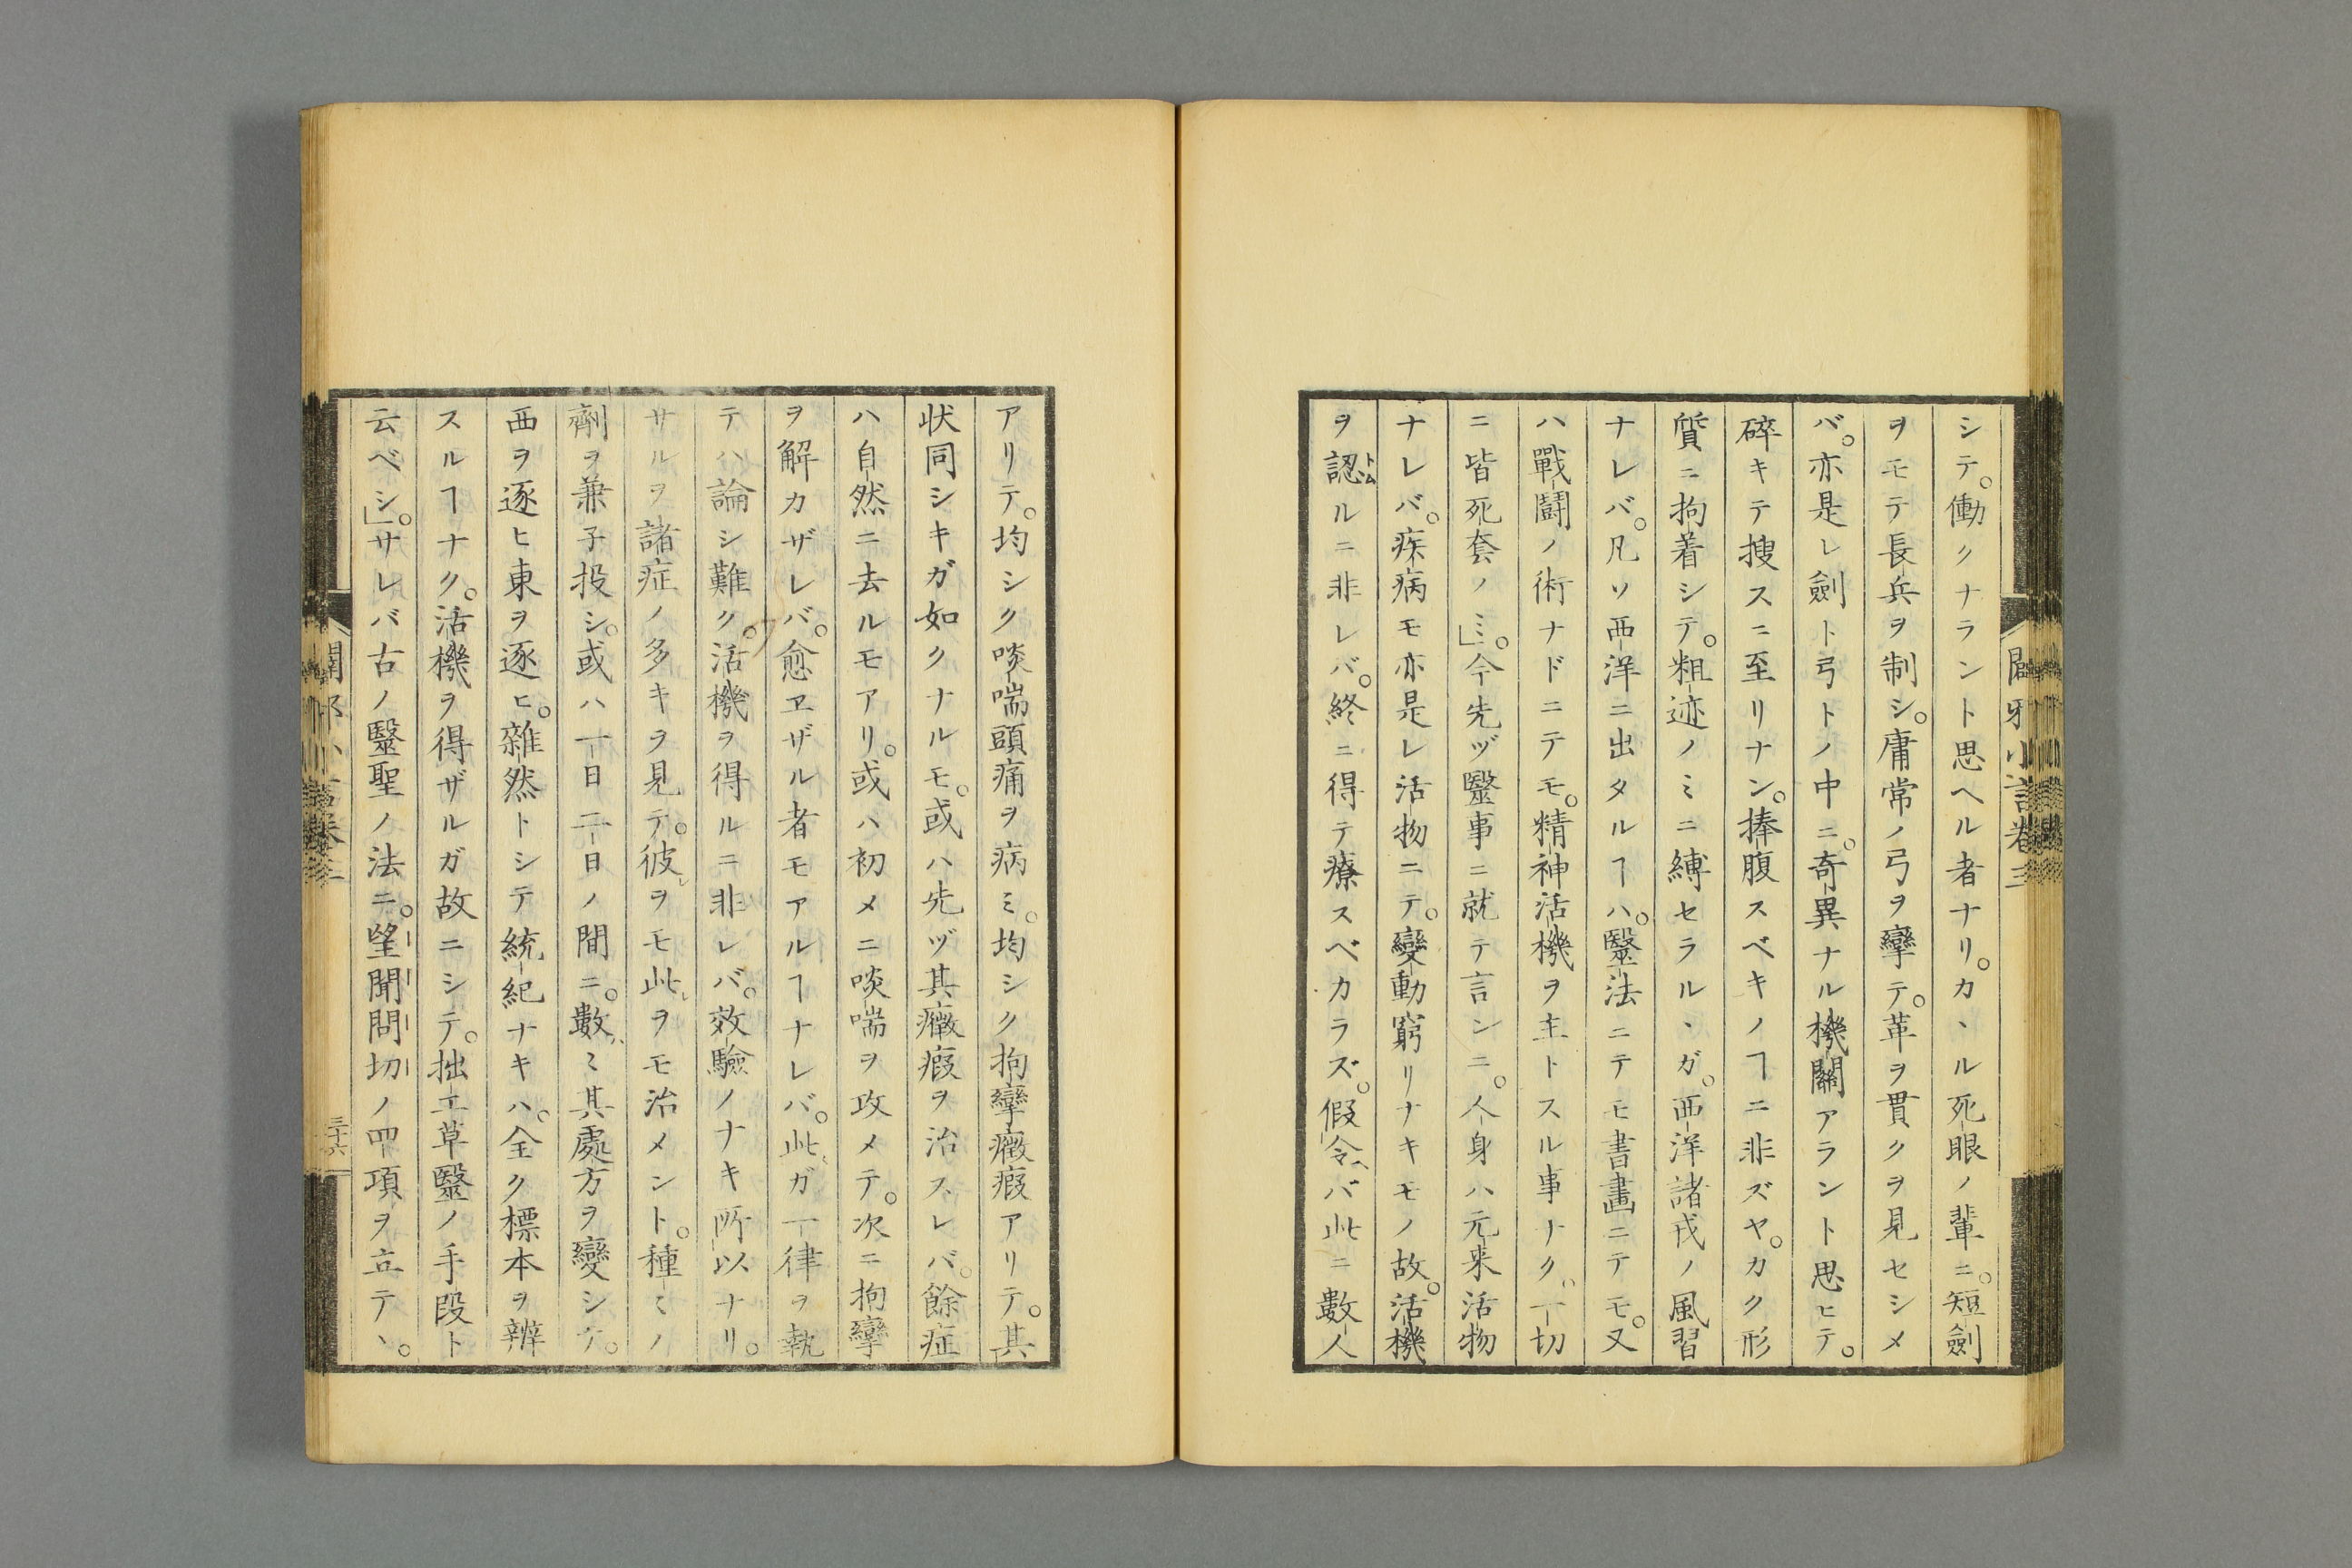 シテ。働クナラント思ヘル者ナリ。カヽル死眼ノ輩ニ。短劍
ヲモテ長兵ヲ制シ。庸常ノ弓ヲ攣テ。革ヲ貫クヲ見セシメ
バ。亦是レ劍ト弓トノ中ニ。奇異ナル機關アラント思ヒテ。
碎キテ搜スニ至リナン。捧腹スベキノヿニ非ズヤ。カク形
質ニ拘着シテ。粗迹ノミニ縛セラルヽガ。西洋諸戎ノ風習
ナレバ。凡ソ西洋ニ出タルヿハ。醫法ニテモ書畫ニテモ。又
ハ戰鬪ノ術ナドニテモ。精神活機ヲ主トスル事ナク。一切
ニ皆死套ノミ」。今先ヅ醫事ニ就テ言ンニ。人身ハ元来活物
ナレバ。疾病モ亦是レ活物ニテ。變動窮リナキモノ故。活機
ヲ認トムルニ非レバ。終ニ得テ療スベカラズ。假令ヘバ此ニ數人
アリテ。均シク啖喘頭痛ヲ病ミ。均シク拘攣癥瘕アリテ。其
状同シキガ如クナルモ。或ハ先ヅ其癥瘕ヲ治スレバ。餘症
ハ自然ニ去ルモアリ。或ハ初メニ啖喘ヲ攻メテ。次ニ拘攣
ヲ解カザレバ。愈ヱザル者モアルヿナレバ。此レガ一律ヲ執
テハ論シ難ク。活機ヲ得ルニ非レバ。效驗ノナキ所以ナリ。
サルヲ諸症ノ多キヲ見テ。彼レヲモ此レヲモ治メント。種〻ノ
劑ヲ兼子投シ。或ハ一日二日ノ間ニ。數〻其處方ヲ變シテ。
西ヲ逐ヒ東ヲ逐ヒ。雜然トシテ統紀ナキハ。全ク標本ヲ辨
スルヿナク。活機ヲ得ザルガ故ニシテ。拙工草醫ノ手段ト
云ベシ」。サレバ古ノ醫聖ノ法ニ。望聞問切ノ四項ヲ立テヽ。
三十六